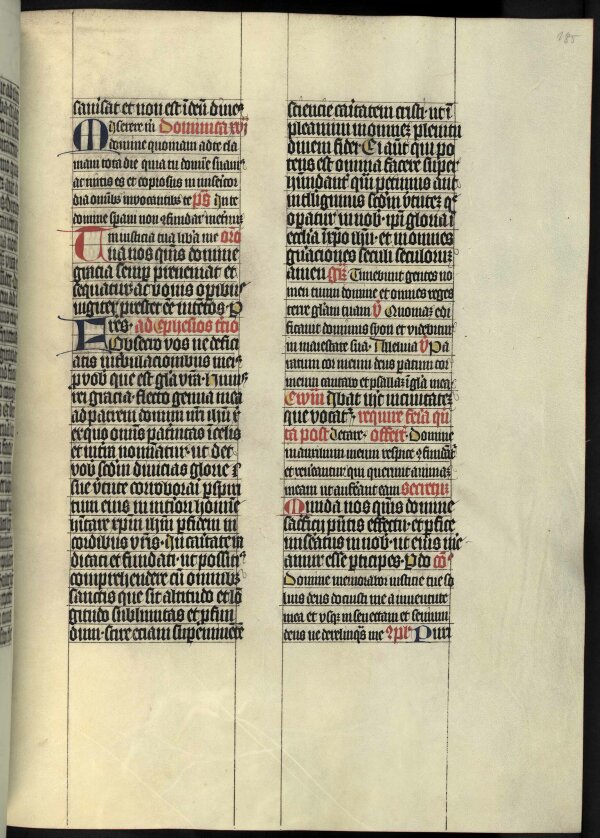 185
sanisat et non est ideʒ dine
Miserere mi Dominica xvi
domine quoniam ad te cla
mam tota die quia tu domine suauis
ac mitis es et copiosus in misericor
dia omibus inuocantibus te ps In te
domine speraui non confundar in eternum
in iusticia tua libera me oro
Tua nos quis domine
gracia semp preueniat et
sequatur ac bonis opibus
iugiter prestet ee intetos P
Fres ad Ephesios tercio
Obsecro vos ne defici
atis in tribulacionibus meis
p vob que est gla vra huius
rei gracia flecto genua mea
ad patrem domini nri ihu xpi
ex quo omis paternitas in celis
et in terra nominatur ut det
vob scdm diuicias glorie
sue virtute corroborari p spiri
tum eius in interiori homine
hitare xpm ihm p fidem in
cordibus vris in caritate ra
dicati et fundati ut possitis
comprehendere cu omnibus
sanctis que sit altitudo et lon
gitudo sublimitas et pfun
dum scire eciam supeminente
sciencie caritatem cristi ut i
pleamini in omnez plenitu
dinem dei Ei aut qui po
tens est omnia facere super
habundanter quam petimus aut
intelligimus scdm virtutez que
opatur in nob ipi gloria i
ecclia i xpo ihu et in omnes
gnaciones seculi seculorum
amen gr Timebunt gentes no
men tuum domine et omnes reges
terre glam tuam v Quoniam edi
ficauit dominus syon et videbitur
in maiestate sua Alleluia v Pa
ratum cor meum deus paratum cor
meum cantabo et psallam i gla mea
Ewm Ibat ihc in ciuitatem
que vocatur require feria qui
ta post letare offere Domine
in auxilium meum respice confundantur
et reuereantur qui querunt animam
meam ut auferant eam secretum
Munda nos quis domine
sacrificij pntis effectu et pfice
miseratus in nob ut eius me
amur esse pticipes P do co
Domine memorabor iusticie tue so
lius deus docuisti me a iuuentute
mea et vsque in senectam et senium
deus ne derelinquas me pr Puri